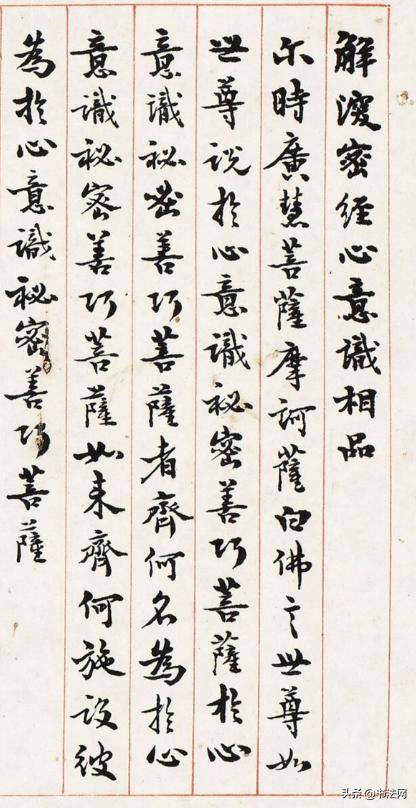 解深密經心意識相品
尒時廣慧菩薩摩訶薩白佛言世尊如
世尊說扵心意識祕密善巧菩薩扵心
意識祕密善巧菩薩者齊何名為扵心
意識祕密善巧菩薩如来齊何施設彼
為扵心意識祕密善巧菩薩
头条@书法网